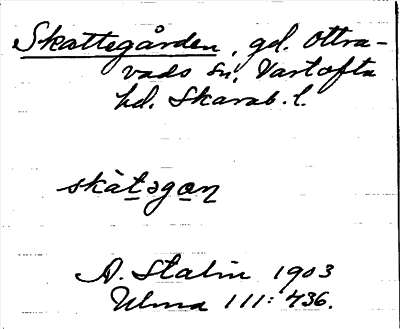 Skattegården, gd. Ottra-
vads sn, Vartofta
hd. Skarab. l.
skàtəgɑn
A. Stalin 1903
Ulma 111: 436.